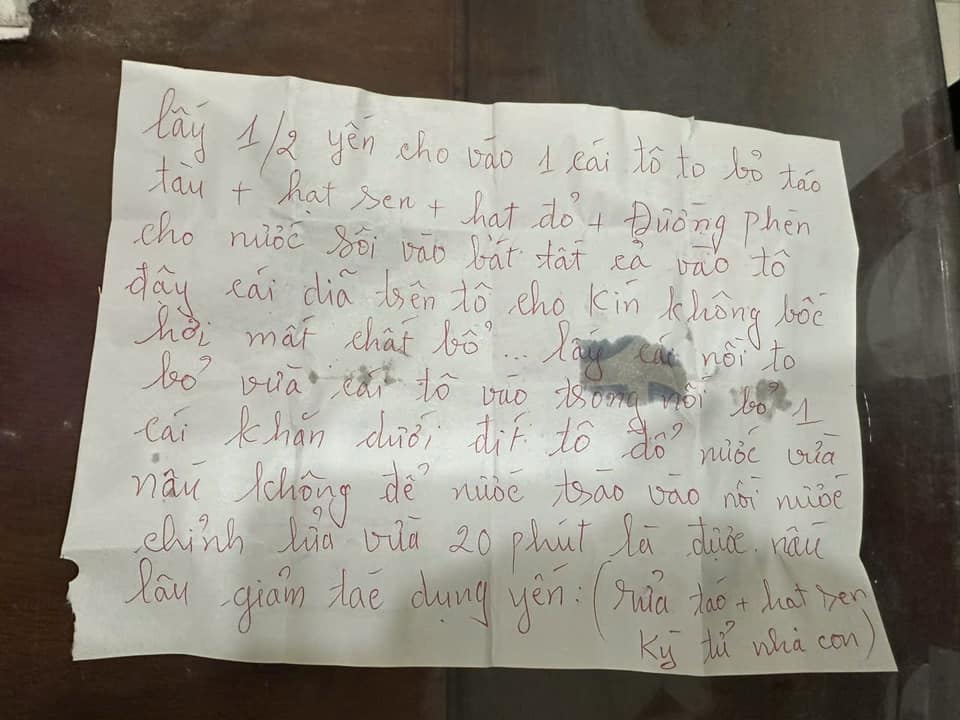 lấy 1/2 yến cho vào 1 cái tô to bỏ táo
tàu + hạt sen + hạt đỏ + Đường phèn
cho nước sôi vào bát tất cả vào tô
đậy cái dĩa trên tô cho kín không bốc
hơi mất chất bổ... lấy cái nồi to
bỏ vừa cái tô vào trong nồi bỏ 1
cái khăn dưới đít tô đổ nước vừa
nấu không để nước trào vào nồi nước
chỉnh lửa vừa 20 phút là được. nấu
lâu giảm tác dụng yến: (rửa táo + hạt sen
Kỷ tử nha con)